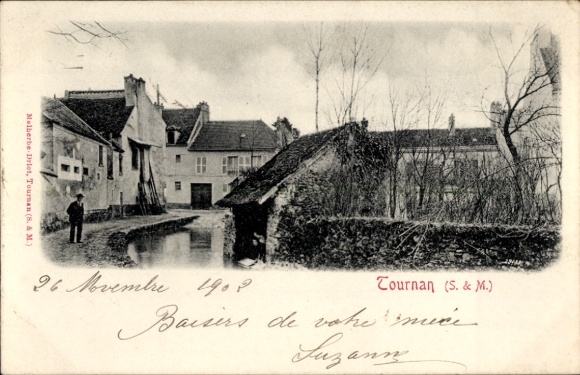 Malherbe-Driot, Tournan (S. & M.)
Tournan (S. & M.)
26 Novembre 1902
Baisers de votre nièce
Suzann